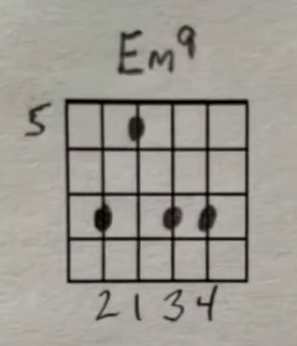 Em9
5
2 1 3 4